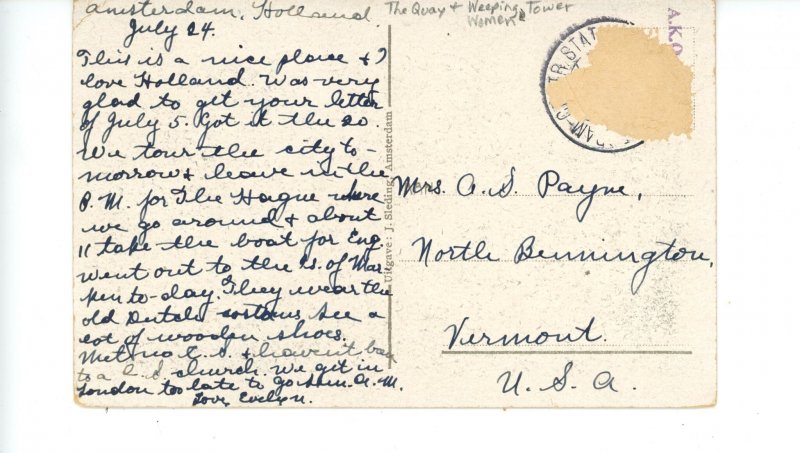 Amsterdam, Holland
July 24.
This is a nice place & I
love Holland. Was very
glad to get your letter
of July 5. Got it the 20.
We tour the city to-
morrow & leave in the
P.M. for The Hague where
we go around & about
11 take the boat for Eng.
Went out to the Is. of Mar-
ken to-day. They wear the
old Dutch costums. See a
lot of wooden shoes.
Met no C. S. & haven't been
to a C. S. church. We get in
London too late to go Sun. A. M.
Love, Evelyn.
The Quay & Weeping Tower
Women's
Uitgave: J. Sleding, Amsterdam
TR. STAT
DAM-C
A.K.O.
Mrs. A. S. Payne,
North Bennington,
Vermont.
U. S. A.